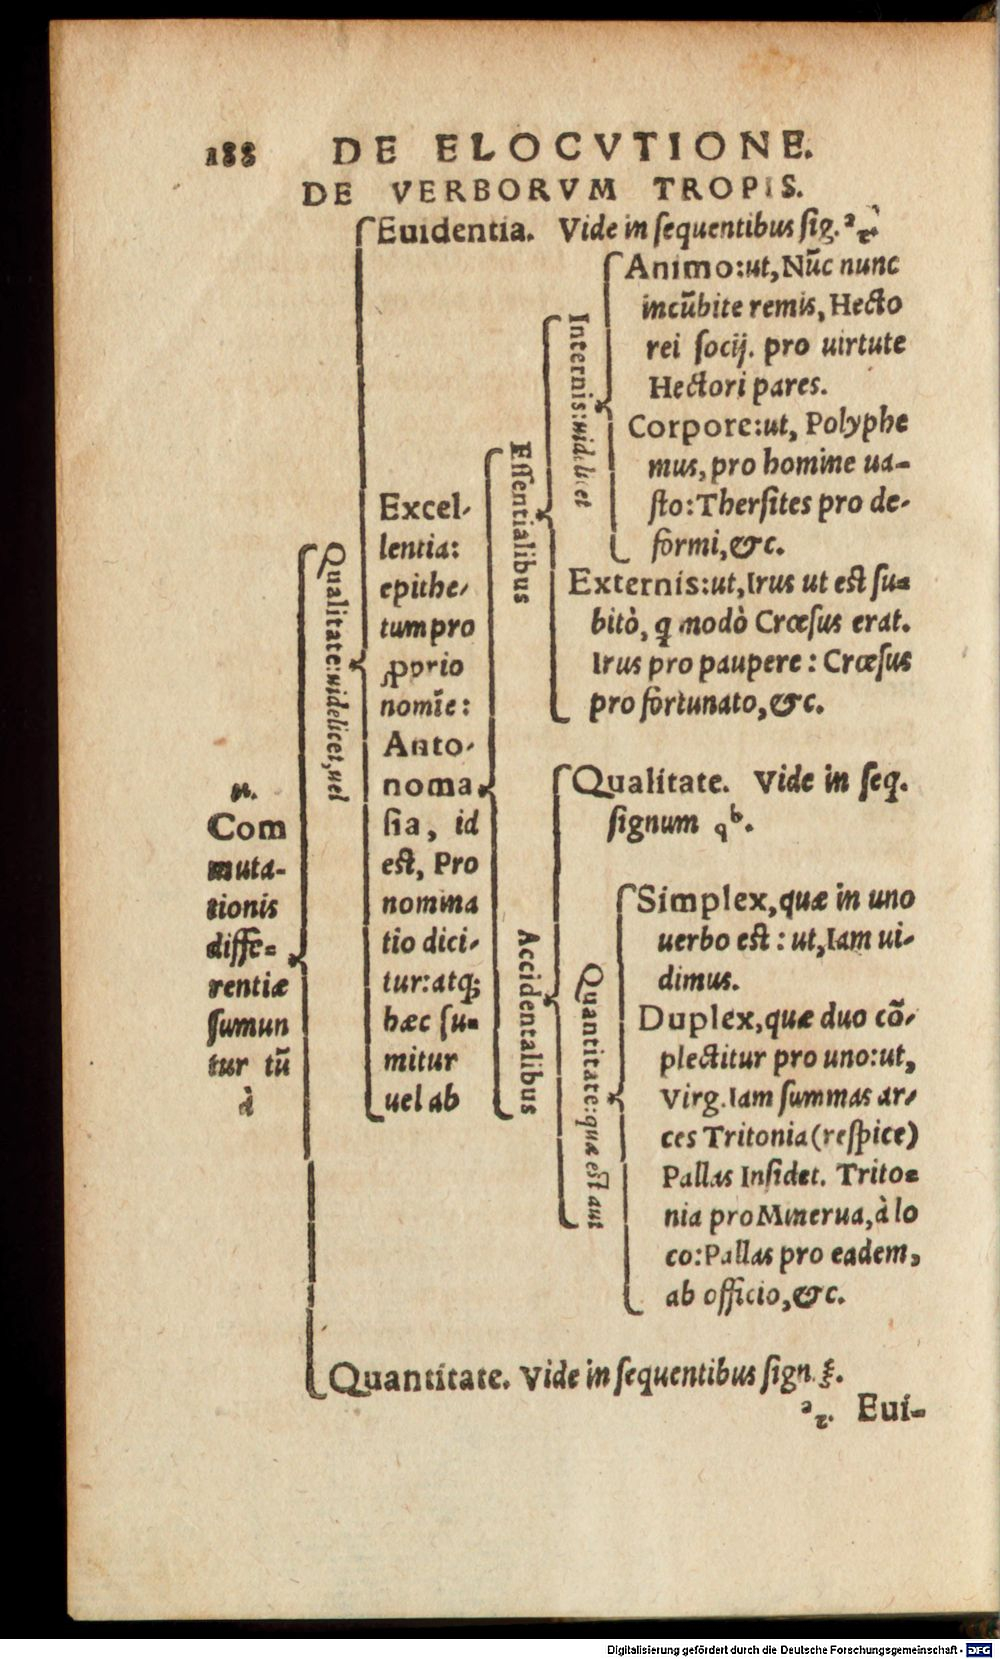 188 DE ELOCVTIONE.
DE VERBORVM TROPIS.
Euidentia. Vide in ſequentibus ſig. ²τ.
n.
Com
muta-
tionis
diffe-
rentiæ
ſumun
tur tũ
à
Qualitate: uidelicet, uel
Excel-
lentia:
epithe-
tum pro
ꝓprio
nomĩe:
Anto-
noma
ſia, id
eſt, Pro
nomina
tio dici-
tur: atq;
hæc ſu-
mitur
uel ab
Eſſentialibus
Internis: uidelicet
Animo: ut, Nũc nunc
incũbite remis, Hecto
rei ſocij. pro uirtute
Hectori pares.
Corpore: ut, Polyphe
mus, pro homine ua-
ſto: Therſites pro de-
formi, &c.
Externis: ut, Irus ut eſt ſu-
bitò, q modò Crœſus erat.
Irus pro paupere: Crœſus
pro fortunato, &c.
Accidentalibus
Qualitate. Vide in ſeq.
ſignum qᵇ.
Quantitate: quæ eſt aut
Simplex, quæ in uno
uerbo eſt: ut, Iam ui-
dimus.
Duplex, quæ duo cõ-
plectitur pro uno: ut,
Virg. Iam ſummas ar-
ces Tritonia (reſpice)
Pallas Inſidet. Trito-
nia pro Minerua, à lo
co: Pallas pro eadem,
ab officio, &c.
Quantitate. Vide in ſequentibus ſign. ξ.
²τ. Eui-
Digitalisierung gefördert durch die Deutsche Forschungsgemeinschaft - DFG